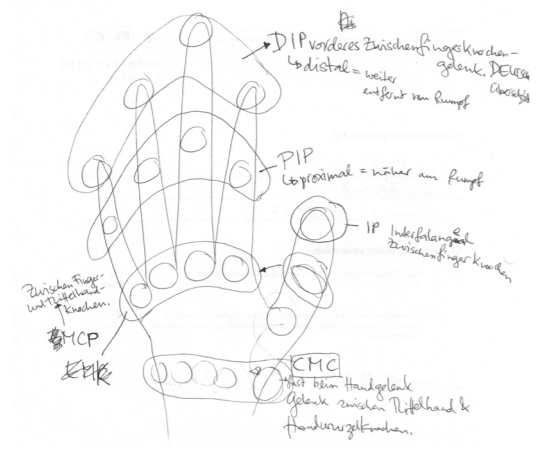 DIP vorderes Zwischenfingerknochen-
gelenk. DEUTSCH
↳ distal = weiter
entfernt vom Rumpf
PIP
↳ proximal = näher am Rumpf
IP
Zwischenfingerknochen
Zwischen Finger-
und Mittelhand-
knochen.
MCP
CMC
fast beim Handgelenk
Gelenk zwischen Mittelhand &
Handwurzelknochen.